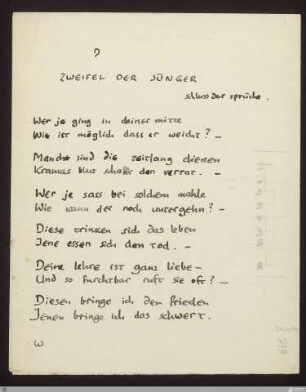 ?
ZWEIFEL DER JÜNGER
schluss der sprüche.
Wer je ging in deiner mitte
Wie ist möglich dass er weicht? –
Manche sind die zeitlang dienen
Krankes blut schafft den verrat. –
Wer je sass bei solchem mahle
Wie kann der noch untergehn? –
Diese trinken sich das leben
Jene essen sich den tod. –
Deine lehre ist ganz liebe –
Und so furchtbar ruft sie oft? –
Diesen bringe ich den frieden
Jenen bringe ich das schwert.